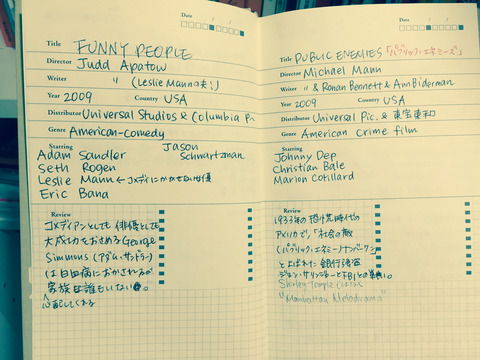 Date
Title FUNNY PEOPLE
Director Judd Apatow
Writer 〃 (Leslie Mannの夫!)
Year 2009 Country USA
Distributor Universal Studios & Columbia P
Genre American-comedy
Starring
Jason
Adam Sandler Schwartzman
Seth Rogen
Leslie Mann ← コメディにかかせない女優
Eric Bana
Review
コメディアンとしても俳優としても
大成功をおさめるGeorge
Simmons (アダム・サンドラー)
は白血病におかされ
家族は誰もいない。
心配してくれる
Date
Title PUBLIC ENEMIES 「パブリック・エネミーズ」
Director Michael Mann
Writer 〃 & Ronan Bennett & Ann Biderman
Year 2009 Country USA
Distributor Universal Pic. & 東宝東和
Genre American Crime film
Starring
Johnny Dep
Christian Bale
Marion Cotillard
Review
1933年の時代の
アメリカで、「社会の敵
(パブリック・エネミー)ナンバーワン」
とよばれた銀行強盗
デリンジャーとFBIとの戦い。
Shirley Temple
"Manhattan Melodrama"